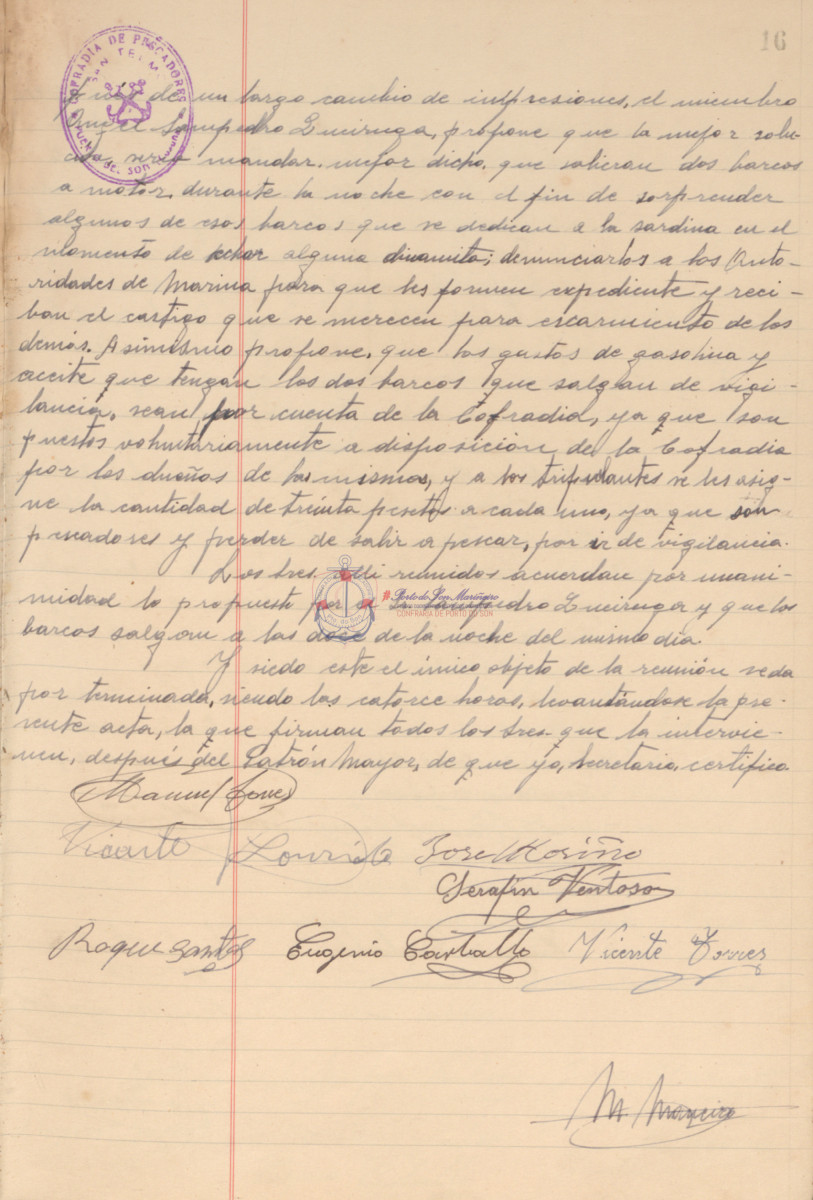 16
COFRADIA DE PESCADORES
SAN TELMO
PUERTO DE SON
de un largo cambio de impresiones, el miembro
Angel Sampedro Quiruga, propone que la mejor solu-
ción sería mandar, mejor dicho, que salieran dos barcos
a motor, durante la noche con el fin de sorprender
algunos de esos barcos que se dedican a la sardina en el
momento de echar alguna dinamita; denunciarlos a las Auto-
ridades de Marina para que les formen expediente y reci-
ban el castigo que se merecen para escarmiento de los
demás. Asimismo propone, que los gastos de gasolina y
aceite que tengan los dos barcos que salgan de vigi-
lancia, sean por cuenta de la Cofradia, ya que son
puestos voluntariamente a disposición de la Cofradia
por los dueños de los mismos, y a los tripulantes se les asig-
ne la cantidad de treinta pesetas a cada uno, ya que son
pescadores y perder de salir a pescar, por ir de vigilancia.
Los tres alli reunidos acuerdan por unani-
midad lo propuesto por el Sr. Sampedro Quiruga y que los
barcos salgan a las doce de la noche del mismo dia.
Y siedo este el único objeto de la reunión se da
por terminada, siendo las catorce horas, levantándose la pre-
sente acta, la que firman todos los tres que la intervie-
nen, después del Patrón Mayor, de que yo, Secretario, certifico.
Porto do Son Mariñeiro
CONFRARÍA DE PORTO DO SON
Manuel
Vicente Lourido José Mosiño
Serafin Ventoso
Roque Santos Eugenio Carballo Vicente Torres
M.